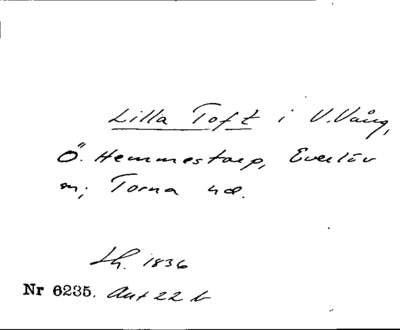 Lilla Toft i V. Vång,
Ö. Hemmestorp, Everlöv
sn; Torna hd.
Lh. 1836
Nr 6235. Akt 22 b